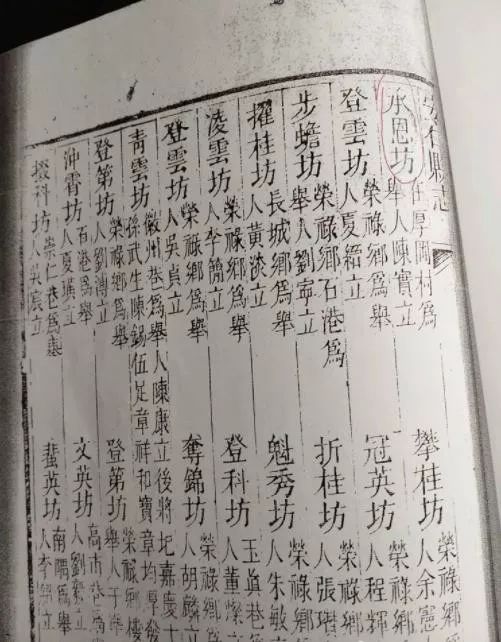 安仁縣志
承恩坊 在厚岡村為舉人陳實立 攀桂坊 榮祿鄉 人余憲
登雲坊 榮祿鄉為舉人夏縉立 冠英坊 榮祿鄉 人程輝
步蟾坊 榮祿鄉石港為舉人劉寧立 折桂坊 榮祿鄉 人張瑨
擢桂坊 長城鄉為舉人黃淡立 魁秀坊 榮祿鄉 人朱敏
凌雲坊 榮祿鄉為舉人李簡立 登科坊 玉真巷 人董燦立
登雲坊 榮祿鄉為舉人吳貞立 奪錦坊 榮祿鄉為 人胡麟
青雲坊 徽州巷為舉人陳康立後將圯嘉慶十 孫武生陳錫伍足章祥和寶章均學
登第坊 榮祿鄉為舉人劉溥立 登第坊 榮祿鄉 舉人
沖霄坊 石港為舉人夏璜立 文英坊 高市 人劉 立
掇科坊 崇仁巷為 人吳宸立 蜚英坊 南隅為舉人李 立